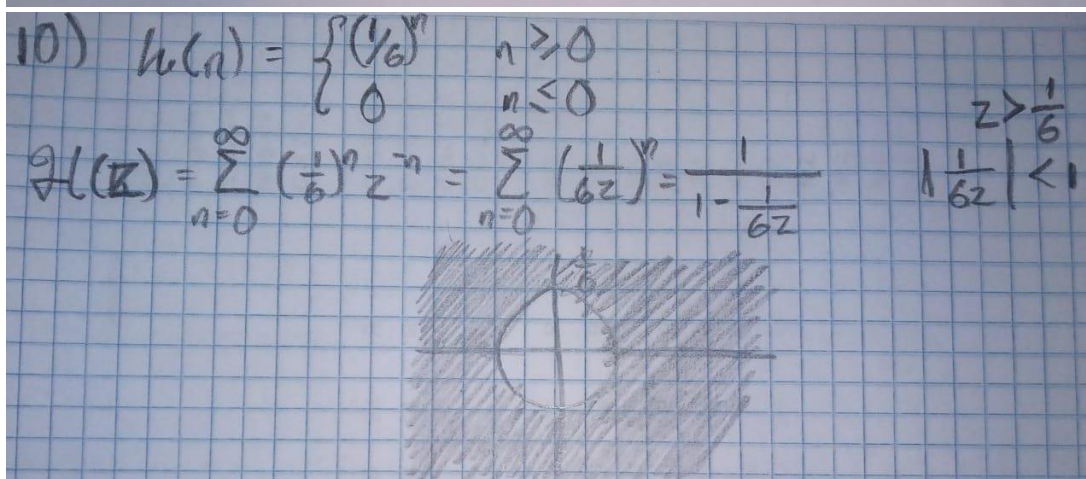 10) h(n) = { (1/6)^n n ≥ 0
0 n ≤ 0
z > 1/6
H(z) = ∞ Σ n=0 (1/6)^n z^-n = ∞ Σ n=0 (1/6z)^n = 1/(1 - 1/6z) |1/6z| < 1
1/6